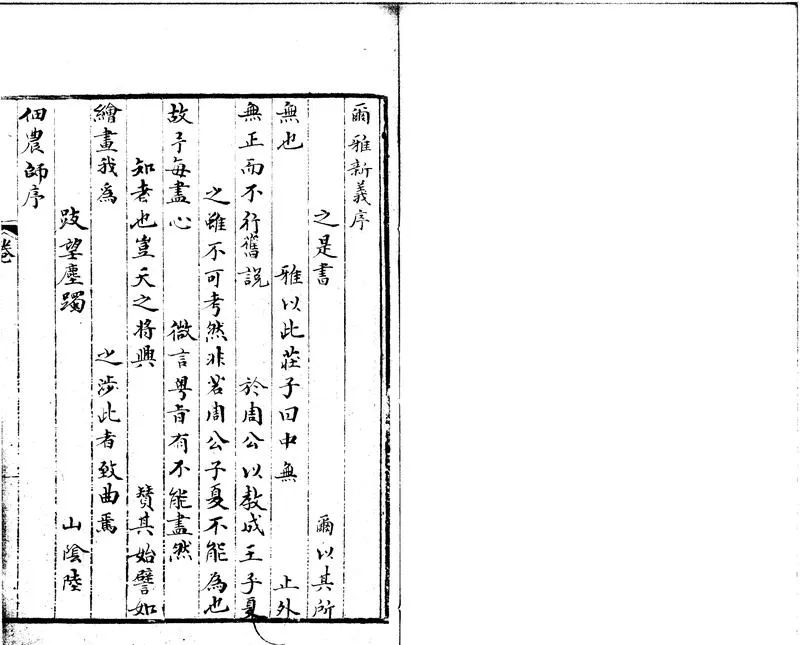 爾雅新義序
之是書 爾以其所
無也 雅以此莊子曰中無 止外
無正而不行舊說 於周公以教成王子夏
之雖不可考然非若周公子夏不能為也
故予每盡心 微言粤旨有不能盡然
知者也豈天之將興 贊其始譬如
繪畫我為 之涉此者致曲焉
跂望塵躅 山陰陸
佃農師序